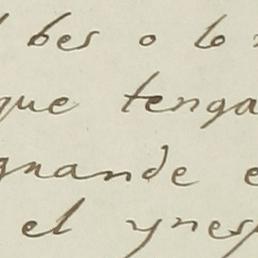 bes o lo
que tenga
grande e
el ynesp